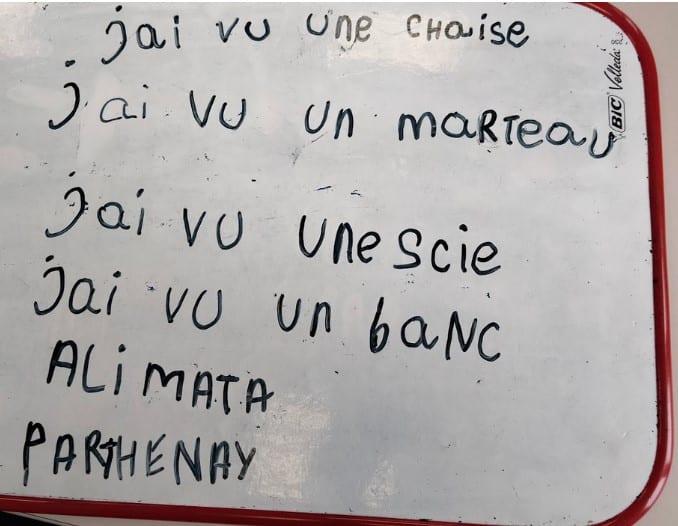 jai vu une chaise
jai vu un marteau
jai vu une scie
jai vu un banc
ALiMATA
PARTHENAY
BIC Velleda